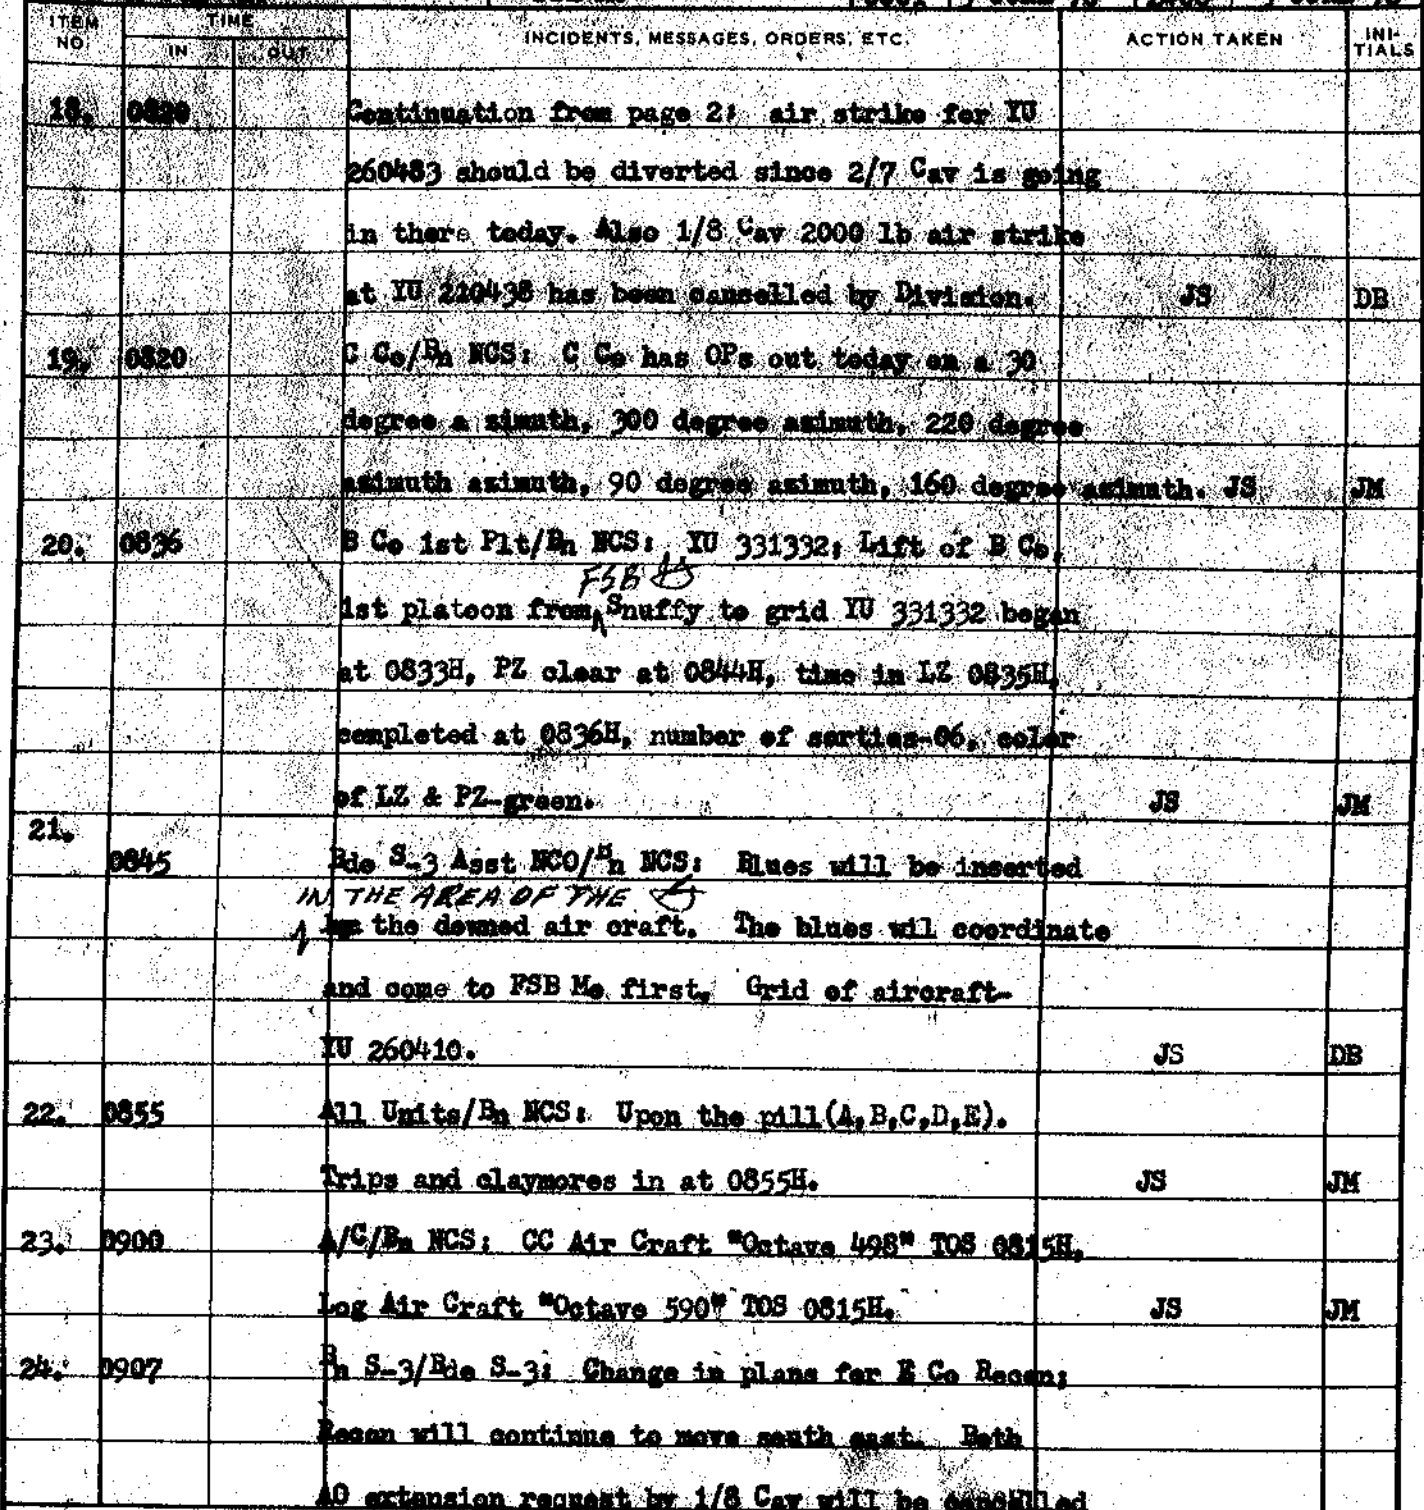 ITEM NO. TIME IN OUT INCIDENTS, MESSAGES, ORDERS, ETC. ACTION TAKEN INI-TIALS
18. 0820 Continuation from page 2: air strike for YU
260483 should be diverted since 2/7 Cav is going
in there today. Also 1/8 Cav 2000 lb air strike
at YU 210438 has been cancelled by Division. JS DB
19. 0820 C Co/Bn NCS: C Co has OPs out today on a 30
degree a zimuth, 300 degree azimuth, 220 degree
azimuth azimuth, 90 degree azimuth, 160 degree azimuth. JS JM
20. 0836 B Co 1st Plt/Bn NCS: YU 331332: Lift of B Co,
FSB
1st platoon from Snuffy to grid YU 331332 began
at 0833H, PZ clear at 0844H, time in LZ 0835H,
completed at 0836H, number of sorties-06, color
of LZ & PZ-green. JS JM
21.
0845 Bde S-3 Asst NCO/Bn NCS: Blues will be inserted
IN THE AREA OF THE
the downed air craft. The blues wil coordinate
and come to FSB Mo first. Grid of aircraft-
YU 260410. JS DB
22. 0855 All Units/Bn NCS: Upon the pill(A,B,C,D,E).
Trips and claymores in at 0855H. JS JM
23. 0900 A/C/Bn NCS: CC Air Craft "Octave 498" TOS 0815H,
Log Air Craft "Octave 590" TOS 0815H. JS JM
24. 0907 Bn S-3/Bde S-3: Change in plans for E Co Recon;
Recon will continue to move south east. Both
AO extension request by 1/8 Cav will be cancelled